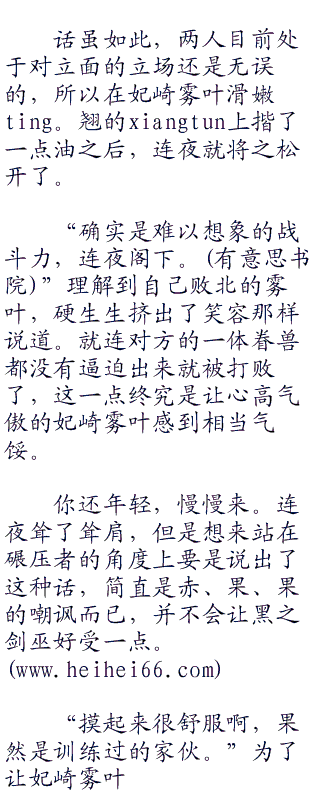 话虽如此，两人目前处
于对立面的立场还是无误
的，所以在妃崎雾叶滑嫩
ting。翘的xiangtun上揩了
一点油之后，连夜就将之松
开了。
“确实是难以想象的战
斗力，连夜阁下。(有意思书
院)”理解到自己败北的雾
叶，硬生生挤出了笑容那样
说道。就连对方的一体眷兽
都没有逼迫出来就被打败
了，这一点终究是让心高气
傲的妃崎雾叶感到相当气
馁。
你还年轻，慢慢来。连
夜耸了耸肩，但是想来站在
碾压者的角度上要是说出了
这种话，简直是赤、果、果
的嘲讽而已，并不会让黑之
剑巫好受一点。
(www.heihei66.com)
“摸起来很舒服啊，果
然是训练过的家伙。”为了
让妃崎雾叶